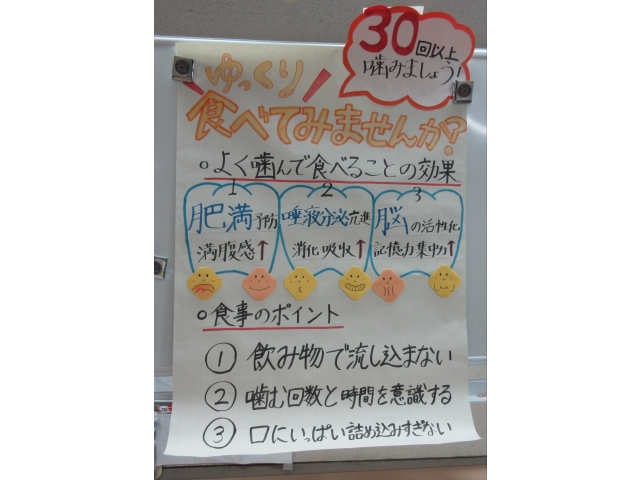 30回以上
噛みましょう!
ゆっくり
食べてみませんか?
○よく噛んで食べることの効果
1
肥満予防
満腹感↑
2
唾液分泌亢進
消化吸収↑
3
脳の活性化
記憶力集中力↑
○食事のポイント
① 飲み物で流し込まない
② 噛む回数と時間を意識する
③ 口にいっぱい詰め込みすぎない